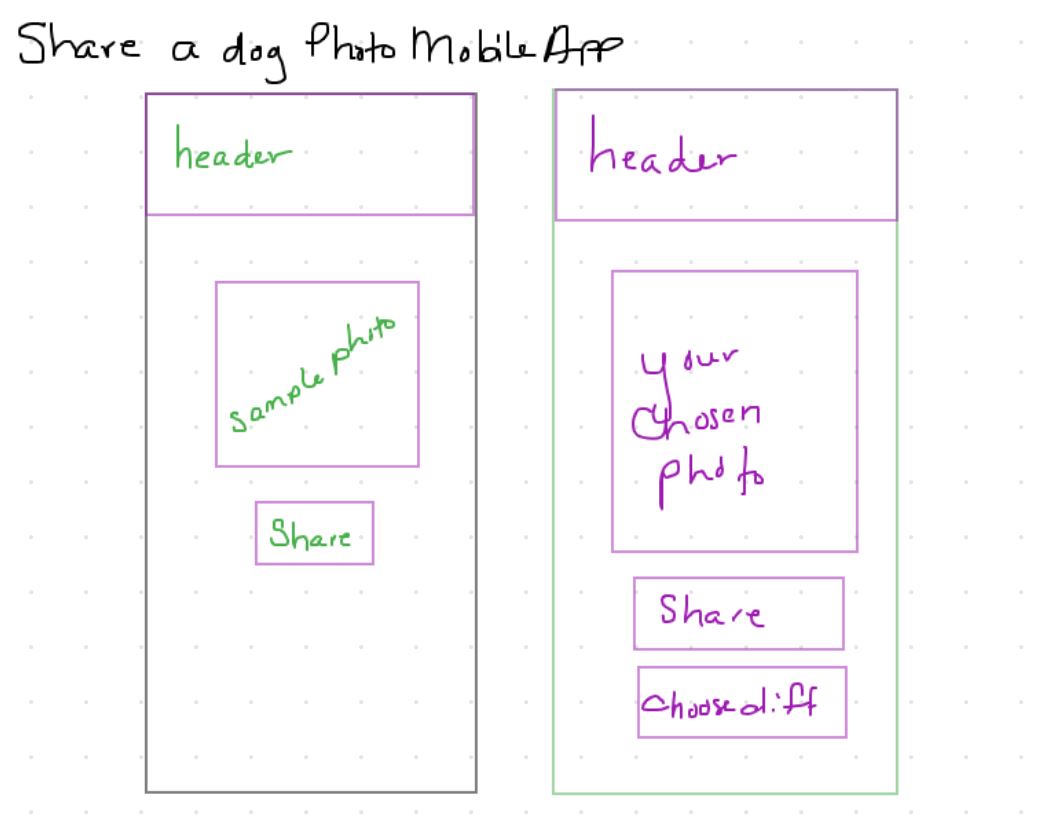 Share a dog Photo Mobile App
header
sample photo
Share
header
your
Chosen
photo
Share
Choose diff